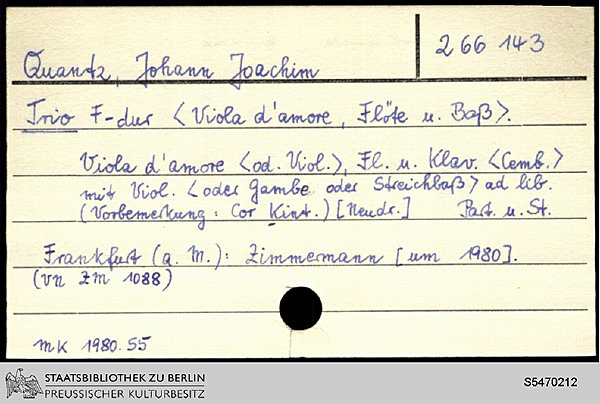 266 143
Quantz, Johann Joachim
Trio F-dur <Viola d'amore, Flöte u. Baß>.
Viola d'amore <od. Viol.>, Fl. u. Klav. <Cemb.>
mit Viol. <oder Gambe oder Streichbaß> ad lib.
(Vorbemerkung: Cor Kint.) [Neudr.] Part. u. St.
Frankfurt (a. M.): Zimmermann [um 1980].
(VN ZM 1088)
MK 1980.55
STAATSBIBLIOTHEK ZU BERLIN
PREUSSISCHER KULTURBESITZ
S5470212